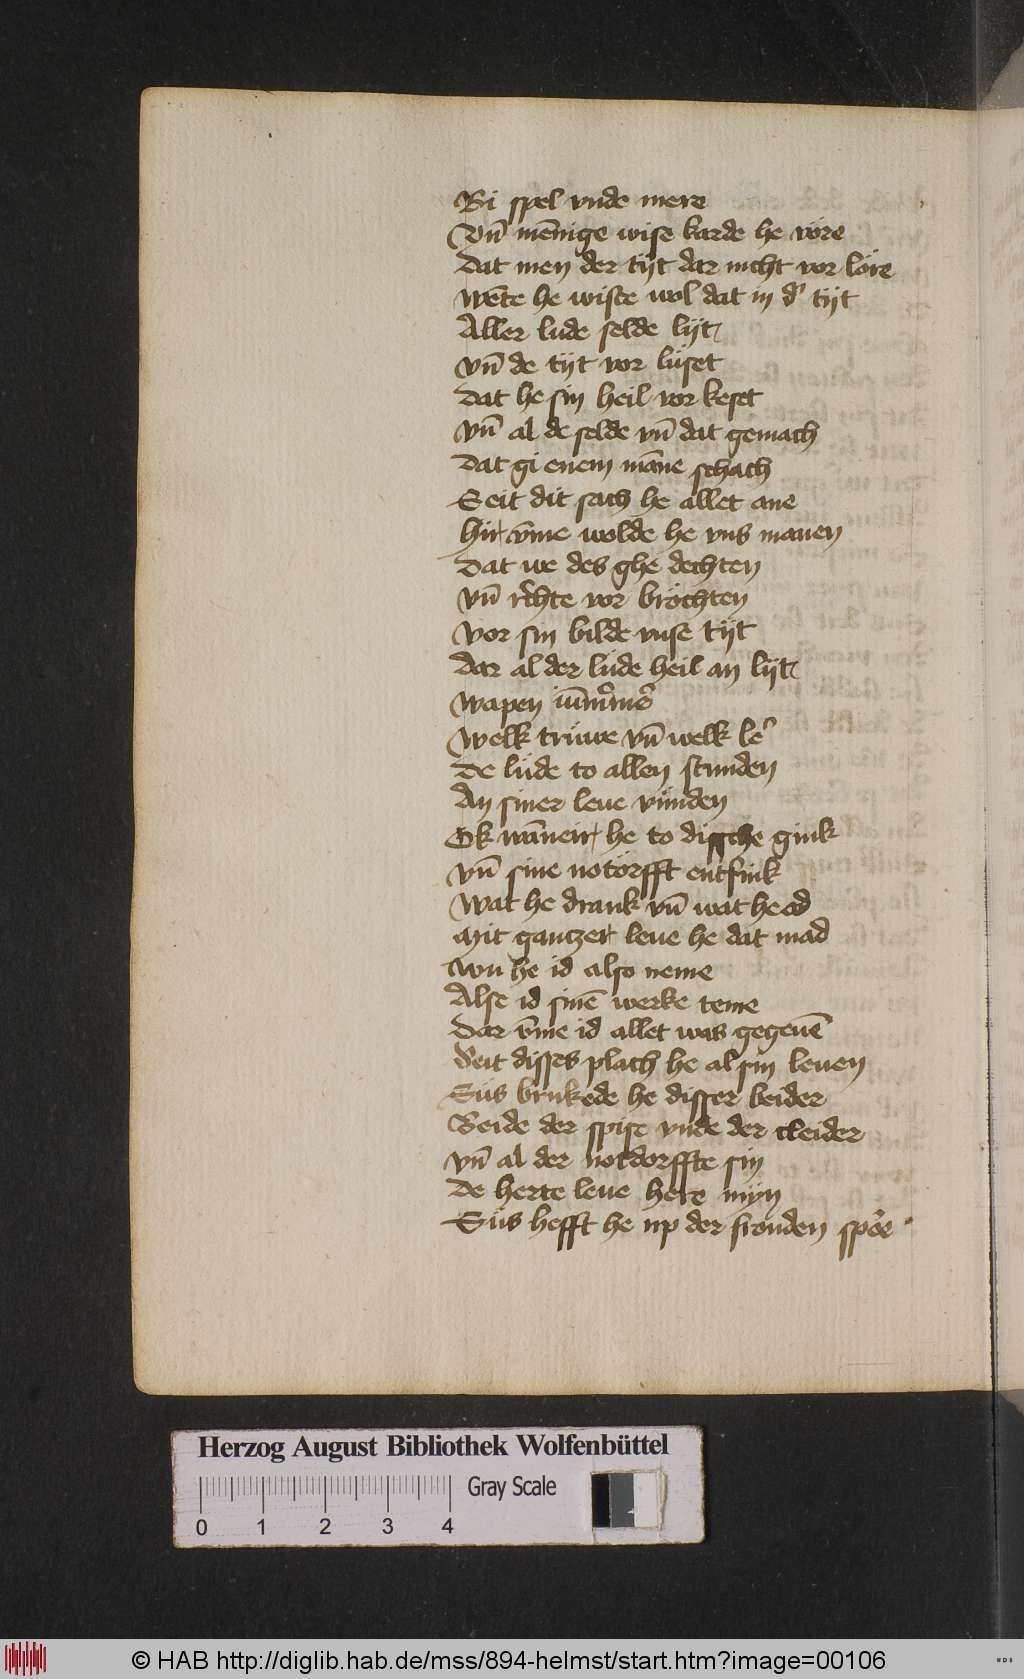 Bi spel vnde mere
Vn̄ mēnige wise karde he vöre
Dat men der tijt dar nicht vor löre
Wēte he wiste wol dat in d' tijt
Aller lude selde lijt
Vn̄ de tijt vor lüset
Dat he sin heil vor keset
Vn̄ al de selde vn̄ dat gemach
Dat gi enem māne schach
Seit dit sach he allet ane
Hir v̄me wolde he vns manen
Dat we des ghe dechten
Vn̄ rechte vor bröchten
Vor sin bilde vnse tijt
Dar al der lüde heil an lijt
Wapen
Welk trüwe vn̄ welk le'
De lüde to allen stunden
An siner leue vünden
Ok wāneir he to dissche gink
Vn̄ sine notörfft entfink
Wat he drank vn̄ wat he ad
Mit gantzer leue he dat mad
Wu he id also neme
Alse id sinē werke teme
Dar v̄me id allet was gegeuē
Seit disses plach he al sin leuen
Süs brukede he disser beider
Beide der spise vnde der cleider
Vn̄ al der notdorffte sin
De herte leue here mijn
Süs hefft he up der fronden
Herzog August Bibliothek Wolfenbüttel
Gray Scale
0 1 2 3 4
© HAB http://diglib.hab.de/mss/894-helmst/start.htm?image=00106